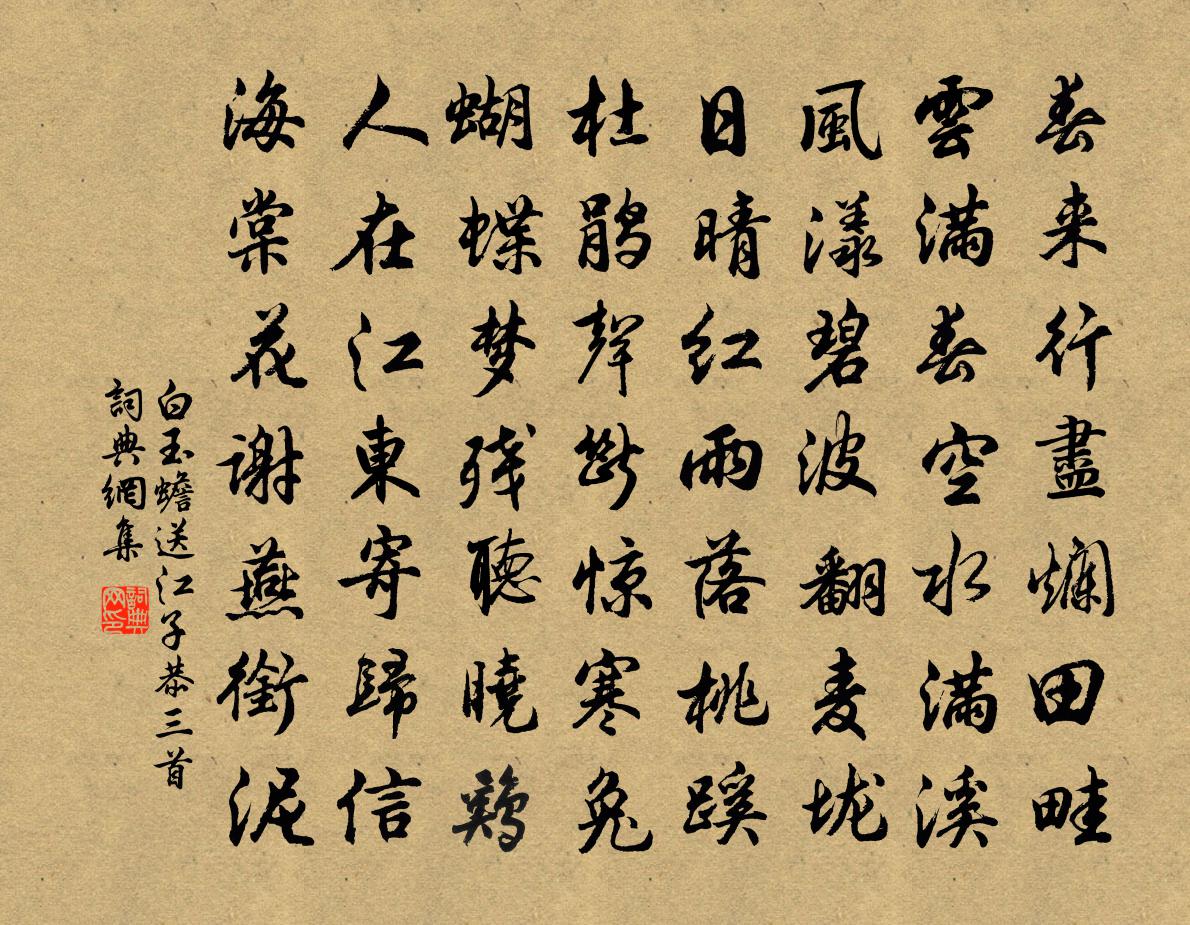 春来行盡爛田畦
雲满春空水满溪
風漾碧波翻麦垅
日晴红雨落桃蹊
杜鹃聲斷惊寒兔
蝴蝶梦残聽曉鷄
人在江東寄歸信
海棠花谢燕銜泥
白玉蟾送江子恭三首
詞典網集
詞典网印